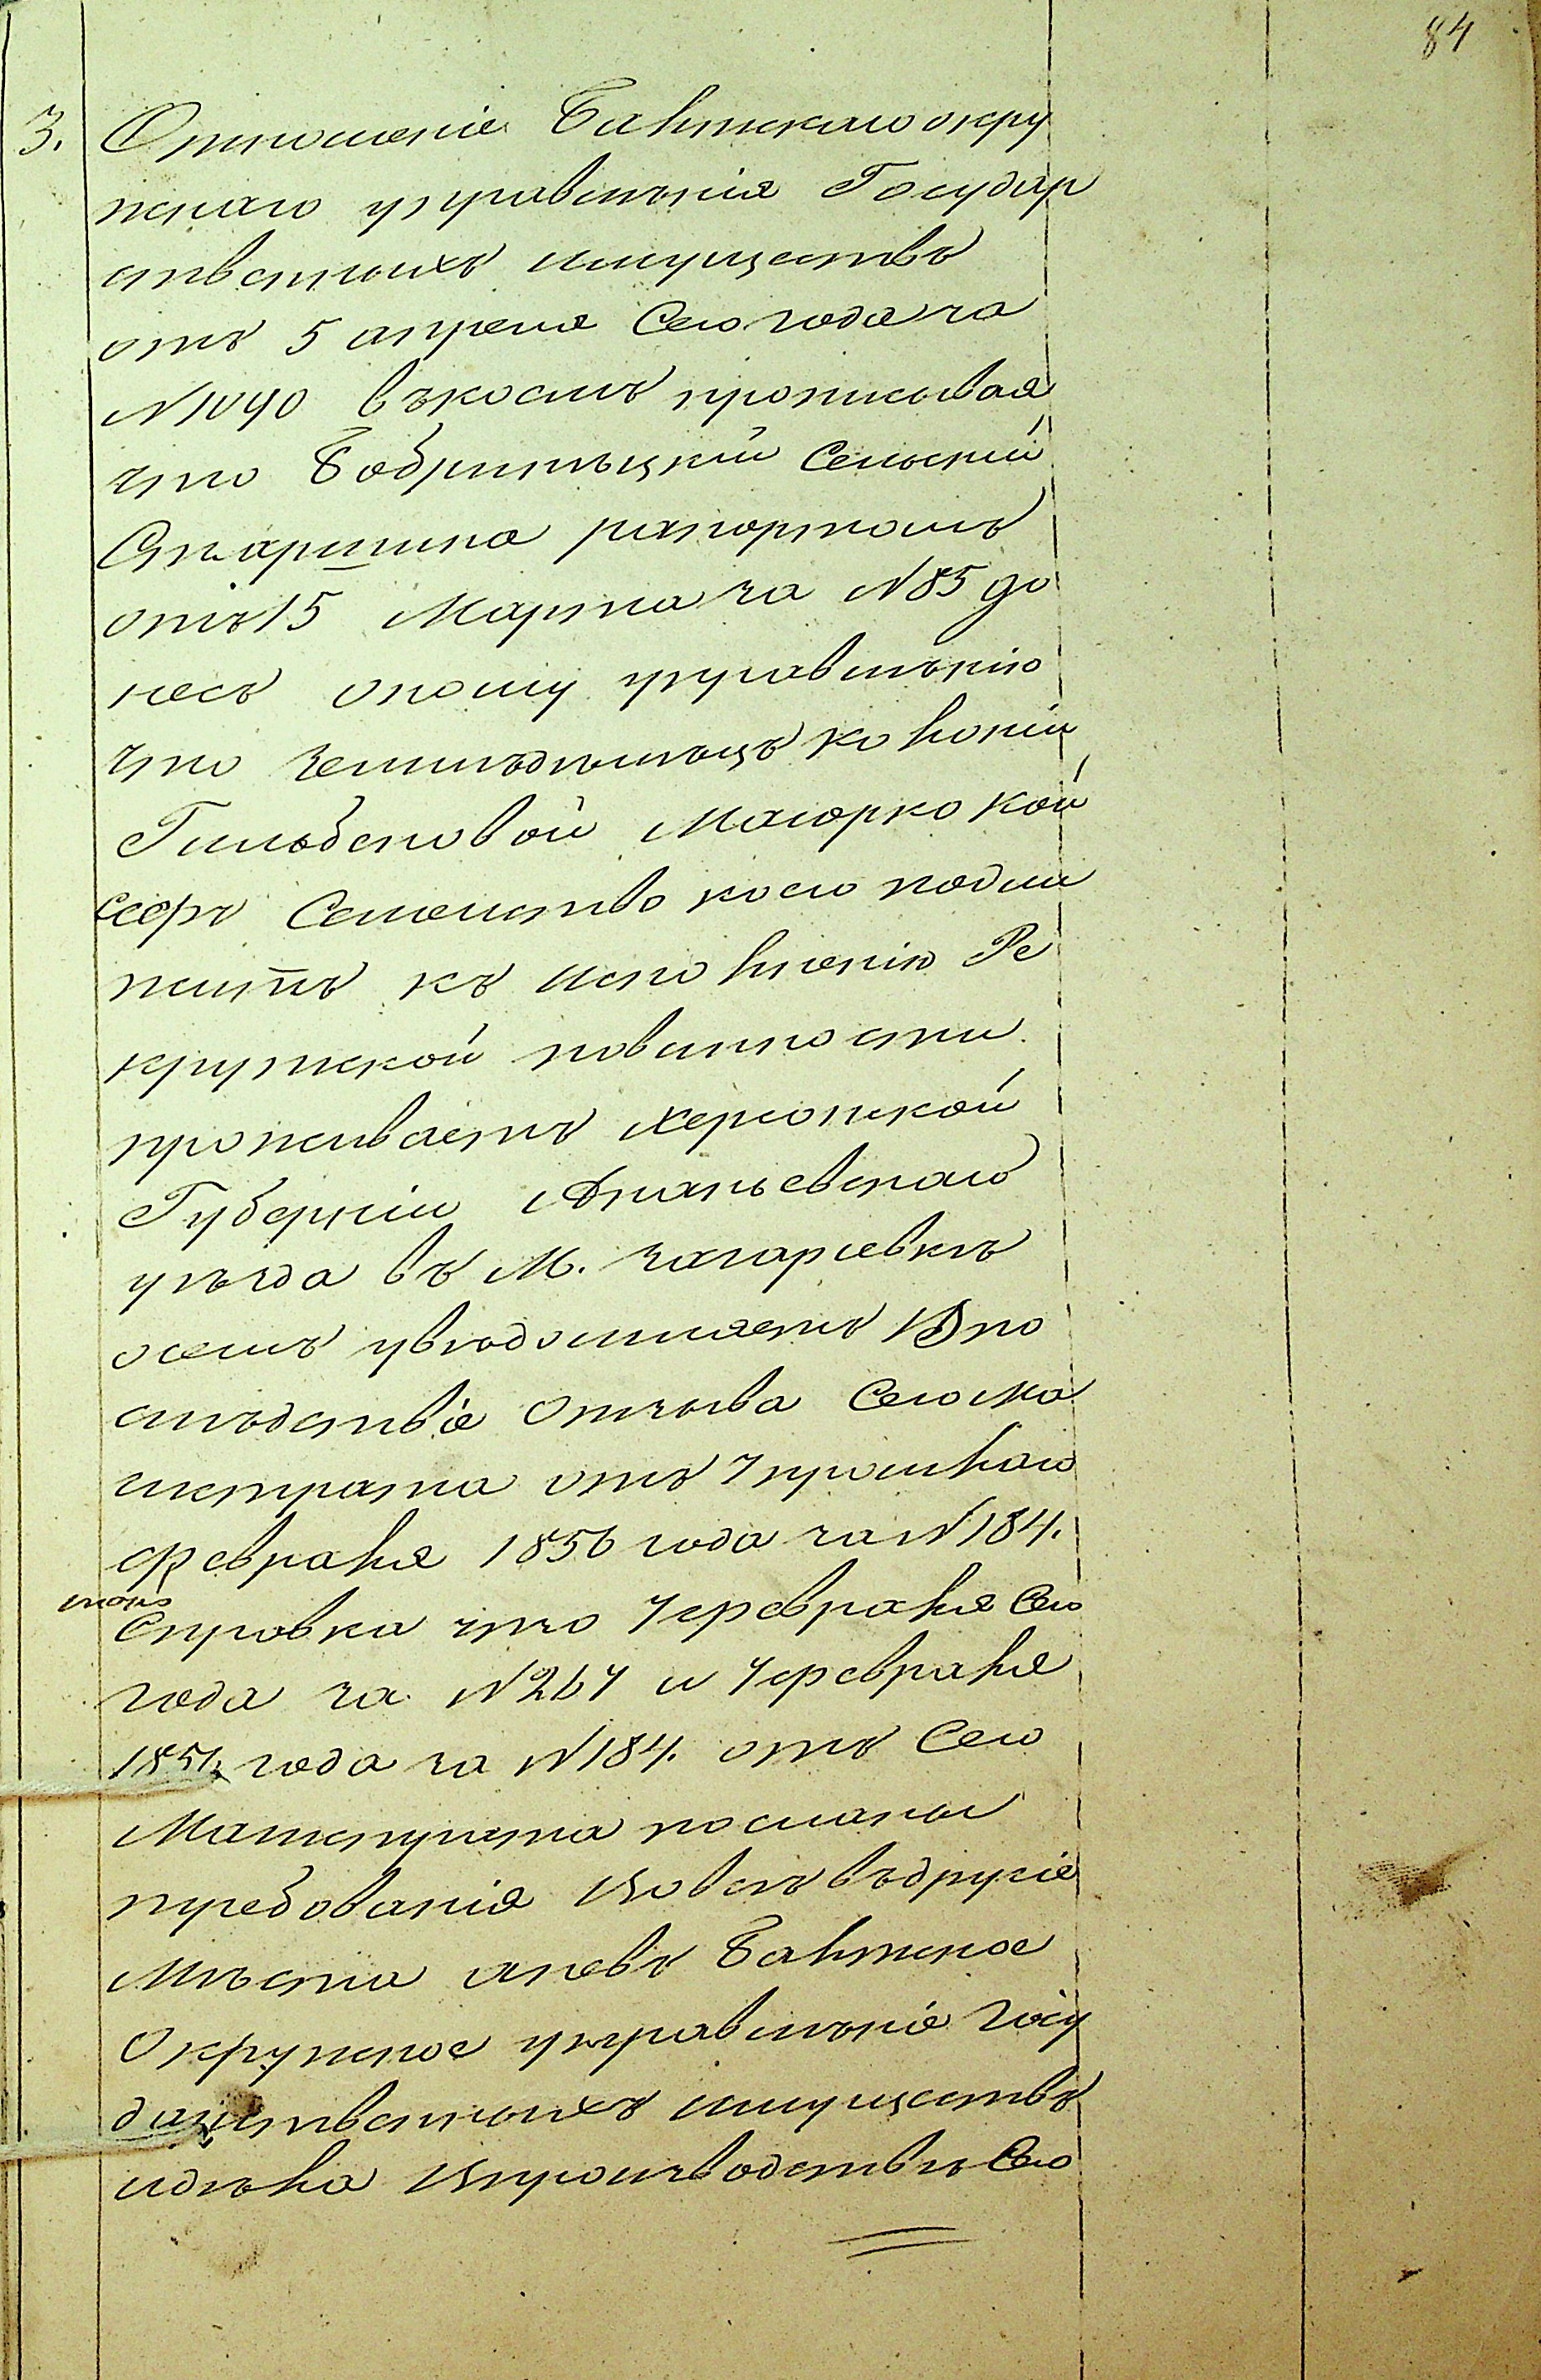 84
3. Отношеніе Балтскаго окру
жнаго управленія Государ
ственныхъ имуществъ
отъ 5 апреля Сего года за
N 1090 въ коемъ прописывая
что Бобринецкій Сельскій
Старшина рапортомъ
отъ 15 Марта за N 85 до
несъ оному управленію
что земледѣлецъ колоніи
Гильдендовой Маіорко Кой
Семейство коего подле
житъ къ исполненію Ре
крутской повинности
проживаетъ Херсонской
Губерніи Ананьевскаго
уѣзда въ М. Захарьевкѣ
о семъ увѣдомляетъ В по
слѣдствіе Отзыва Сего Ма
гистрата отъ 7 прошлаго
февраля 1856 года за N 184.
Справка что 7 февраля Сего
года за N 267 и 7 февраля
1856 года за N 184. отъ Сего
Магистрата посланы
требованія Во всѣ въ другіе
Мѣста а не въ Балтское
Окружное управленіе Госу
дарственныхъ имуществъ
и дѣла В производствѣ Сего